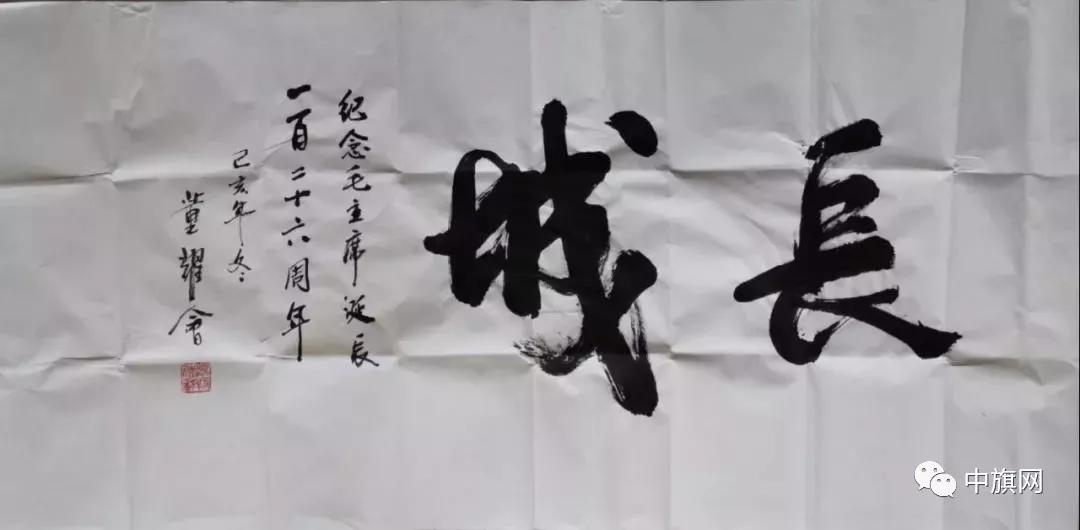 長城
纪念毛主席诞辰
一百二十六周年
己亥年冬
董耀會
中旗网